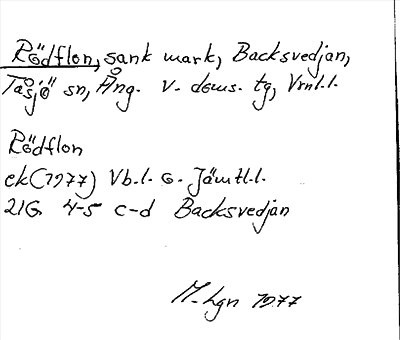 Rödflon, sank mark, Backsvedjan,
Tåsjö sn, Ång. v. doms. tg, Vrnl.l.
Rödflon
ek(1977) Vb.l. o. Jämtl.l.
21G 4-5 c-d Backsvedjan
M-hgn 1977